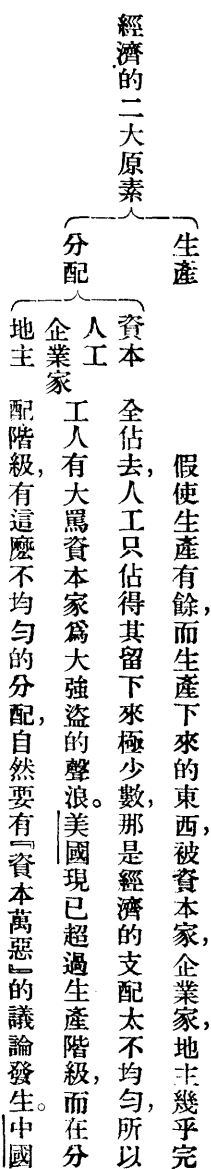 經濟的二大原素
生產
分配
資本
人工
企業家
地主
假使生產有餘，而生產下來的東西，被資本家，企業家，地主幾乎完
全佔去，人工只佔得其留下來極少數，那是經濟的支配太不均勻，所以
工人有大罵資本家爲大強盜的聲浪。美國現已超過生產階級，而在分
配階級，有這麽不均勻的分配，自然要有『資本萬惡』的議論發生。中國